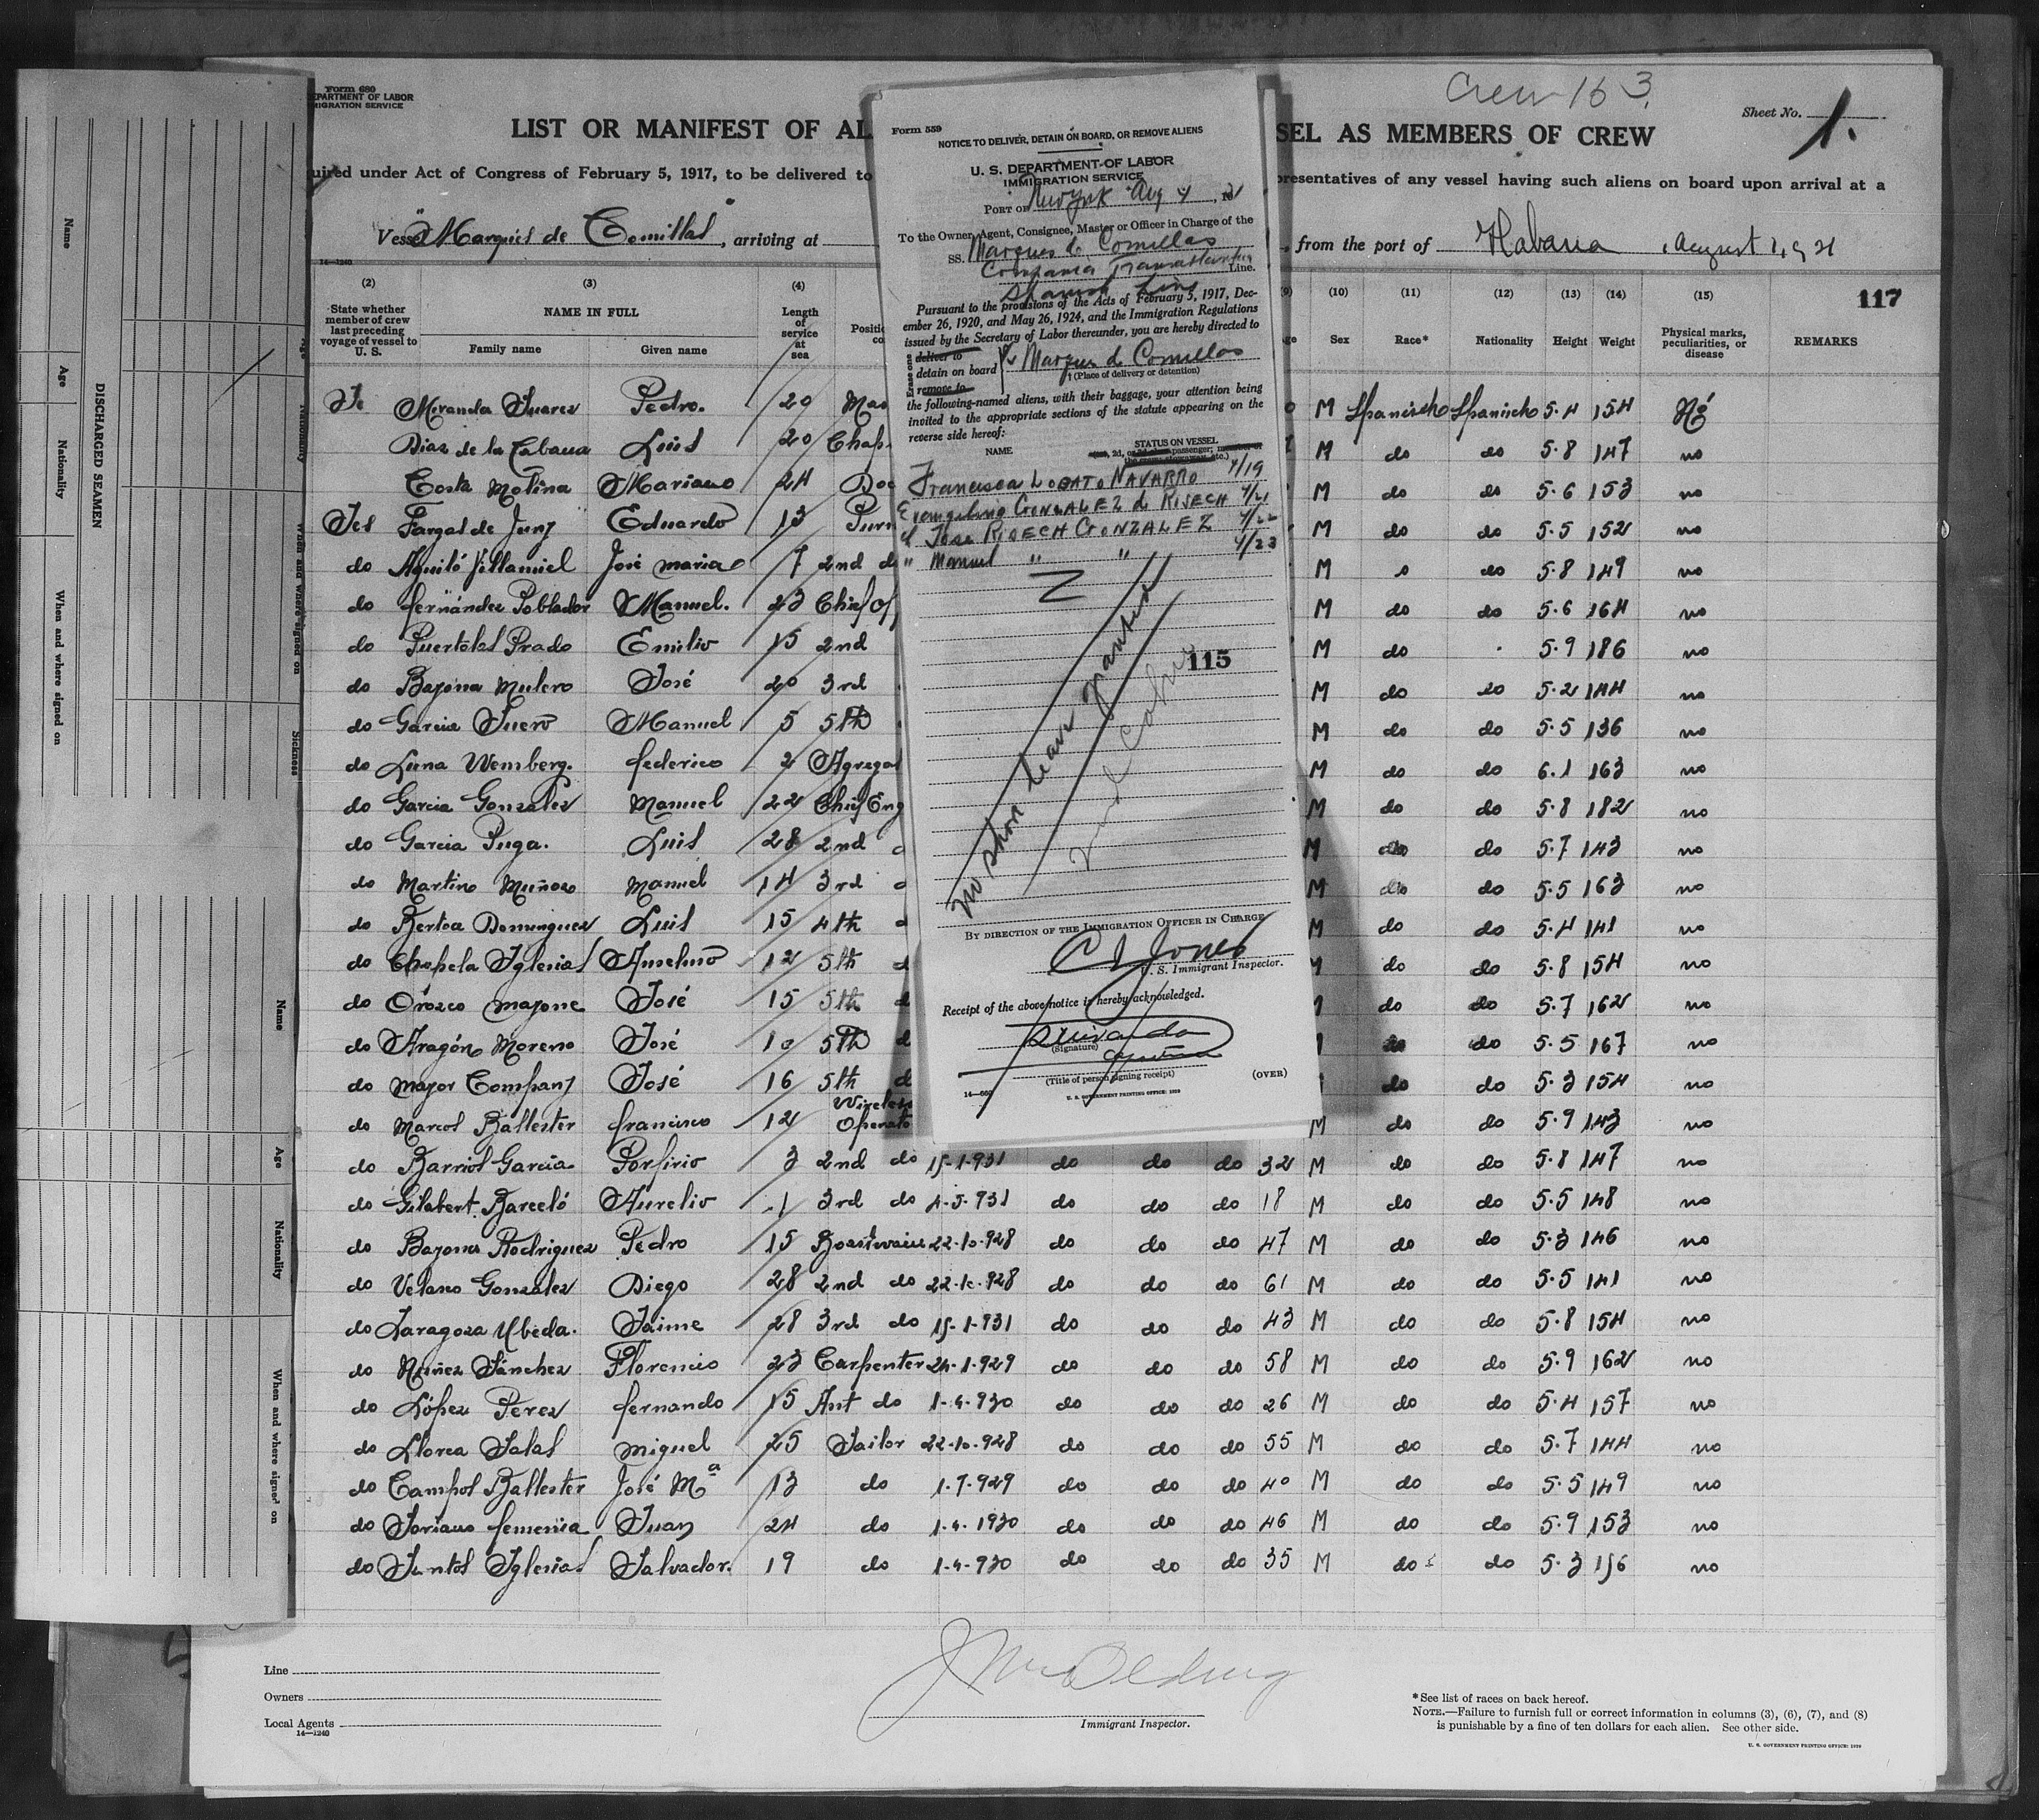 Form 680
DEPARTMENT OF LABOR
IMMIGRATION SERVICE
Crew 163
Sheet No. 1.
LIST OR MANIFEST OF AL
SEL AS MEMBERS OF CREW
uired under Act of Congress of February 5, 1917, to be delivered to
presentatives of any vessel having such aliens on board upon arrival at a
Vessel "Marqués de Comillas", arriving at
, from the port of Habana, August 1, 931
14—1240
117
(2) (3) (4) (10) (11) (12) (13) (14) (15)
State whether member of crew last preceding voyage of vessel to U. S.
NAME IN FULL
Family name Given name
Length of service at sea
Sex Race* Nationality Height Weight Physical marks, peculiarities, or disease REMARKS
Miranda Suarez Pedro. 20 Mas M Spanisch Spanisch 5.4 154 No
Dias de la Cabana Luis 20 Chap. M do do 5.8 147 no
Costa Molina Mariano 24 Doc M do do 5.6 153 no
Yes Fargas de Juny Eduardo 13 Purs M do do 5.5 152 no
do Aguiló Villamiel José maria 7 2nd do M do 5.8 149 no
do fernández Poblador Manuel. 23 Chief Of M do do 5.6 164 no
do Puertolas Prado Emilio 15 2nd M do 5.9 186 no
do Bayona Mulero José 20 3rd M do do 5.2 144 no
do Garcia Suero Manuel 5 5th M do do 5.5 136 no
do Luna Wemberg. federico 2 Agregad M do do 6.1 163 no
do Garcia Gonzalez Manuel 22 Chief Eng M do do 5.8 182 no
do Garcia Puga. Luis 28 2nd M do do 5.7 143 no
do Martino Muñoso Manuel 14 3rd M do do 5.5 163 no
do Bertoa Dominguez Luis 15 4th M do do 5.4 141 no
do Chapela Iglesias Anselmo 12 5th d M do do 5.8 154 no
do Orozco mayone José 15 5th d do do 5.7 162 no
do Aragón Moreno José 10 5th d do do 5.5 167 no
do mayor Company José 16 5th d do do 5.3 154 no
do Marcos Ballester francisco 12 Wireless Operato M do do 5.9 143 no
do Barrios Garcia Porfirio 3 2nd do 15-1-931 do do do 32 M do do 5.8 147 no
do Gilabert Barceló Aurelio 1 3rd do 4-5-931 do do do 18 M do do 5.5 148 no
do Bayona Rodriguez Pedro 15 Boastwain 22-10-928 do do do 47 M do do 5.3 146 no
do Velasco Gonzalez Diego 28 2nd do 22-10-928 do do do 61 M do do 5.5 141 no
do Zaragoza Ubeda. Jaime 28 3rd do 15-1-931 do do do 43 M do do 5.8 154 no
do Nuñez Sánchez Florencio 23 Carpenter 24-1-929 do do do 58 M do do 5.9 162 no
do López Perez fernando 15 Ant do 1-4-930 do do do 26 M do do 5.4 157 no
do Llorca Salas miguel 25 Sailor 22-10-928 do do do 55 M do do 5.7 144 no
do Campos Ballester José Mª 13 do 1-7-929 do do do 40 M do do 5.5 149 no
do Soriano femenia Juan 24 do 1-4-1930 do do do 46 M do do 5.9 153 no
do Santos Iglesias Salvador. 19 do 1-4-930 do do do 35 M do do 5.3 156 no
Line
Owners
Local Agents
14—1240
Immigrant Inspector.
*See list of races on back hereof.
NOTE.—Failure to furnish full or correct information in columns (3), (6), (7), and (8)
is punishable by a fine of ten dollars for each alien. See other side.
U. S. GOVERNMENT PRINTING OFFICE: 1929
Form 559
NOTICE TO DELIVER, DETAIN ON BOARD, OR REMOVE ALIENS
U. S. DEPARTMENT OF LABOR
IMMIGRATION SERVICE
PORT OF New York Aug 4, 1931
To the Owner, Agent, Consignee, Master or Officer in Charge of the
SS. Marques de Comillas
Compania Transatlantica Line.
Spanish Line
Pursuant to the provisions of the Acts of February 5, 1917, Dec-
ember 26, 1920, and May 26, 1924, and the Immigration Regulations
issued by the Secretary of Labor thereunder, you are hereby directed to
Erase one
deliver to
detain on board
remove to
Marques de Comillas
(Place of delivery or detention)
the following-named aliens, with their baggage, your attention being
invited to the appropriate sections of the statute appearing on the
reverse side hereof:
NAME STATUS ON VESSEL
Francisca LOBATO NAVARRO 4/19
Evangelina GONZALEZ de RISECH 4/21
Jose RISECH GONZALEZ 4/22
" Manuel " " 4/23
No shore leave granted
115
BY DIRECTION OF THE IMMIGRATION OFFICER IN CHARGE
C J Jones
U. S. Immigrant Inspector.
Receipt of the above notice is hereby acknowledged.
Miranda
(Signature)
(Title of person signing receipt)
(OVER)
U. S. GOVERNMENT PRINTING OFFICE: 1929
DISCHARGED SEAMEN
Name
Age
Nationality
When and where signed on
Sickness
Name
Age
Nationality
When and where signed on